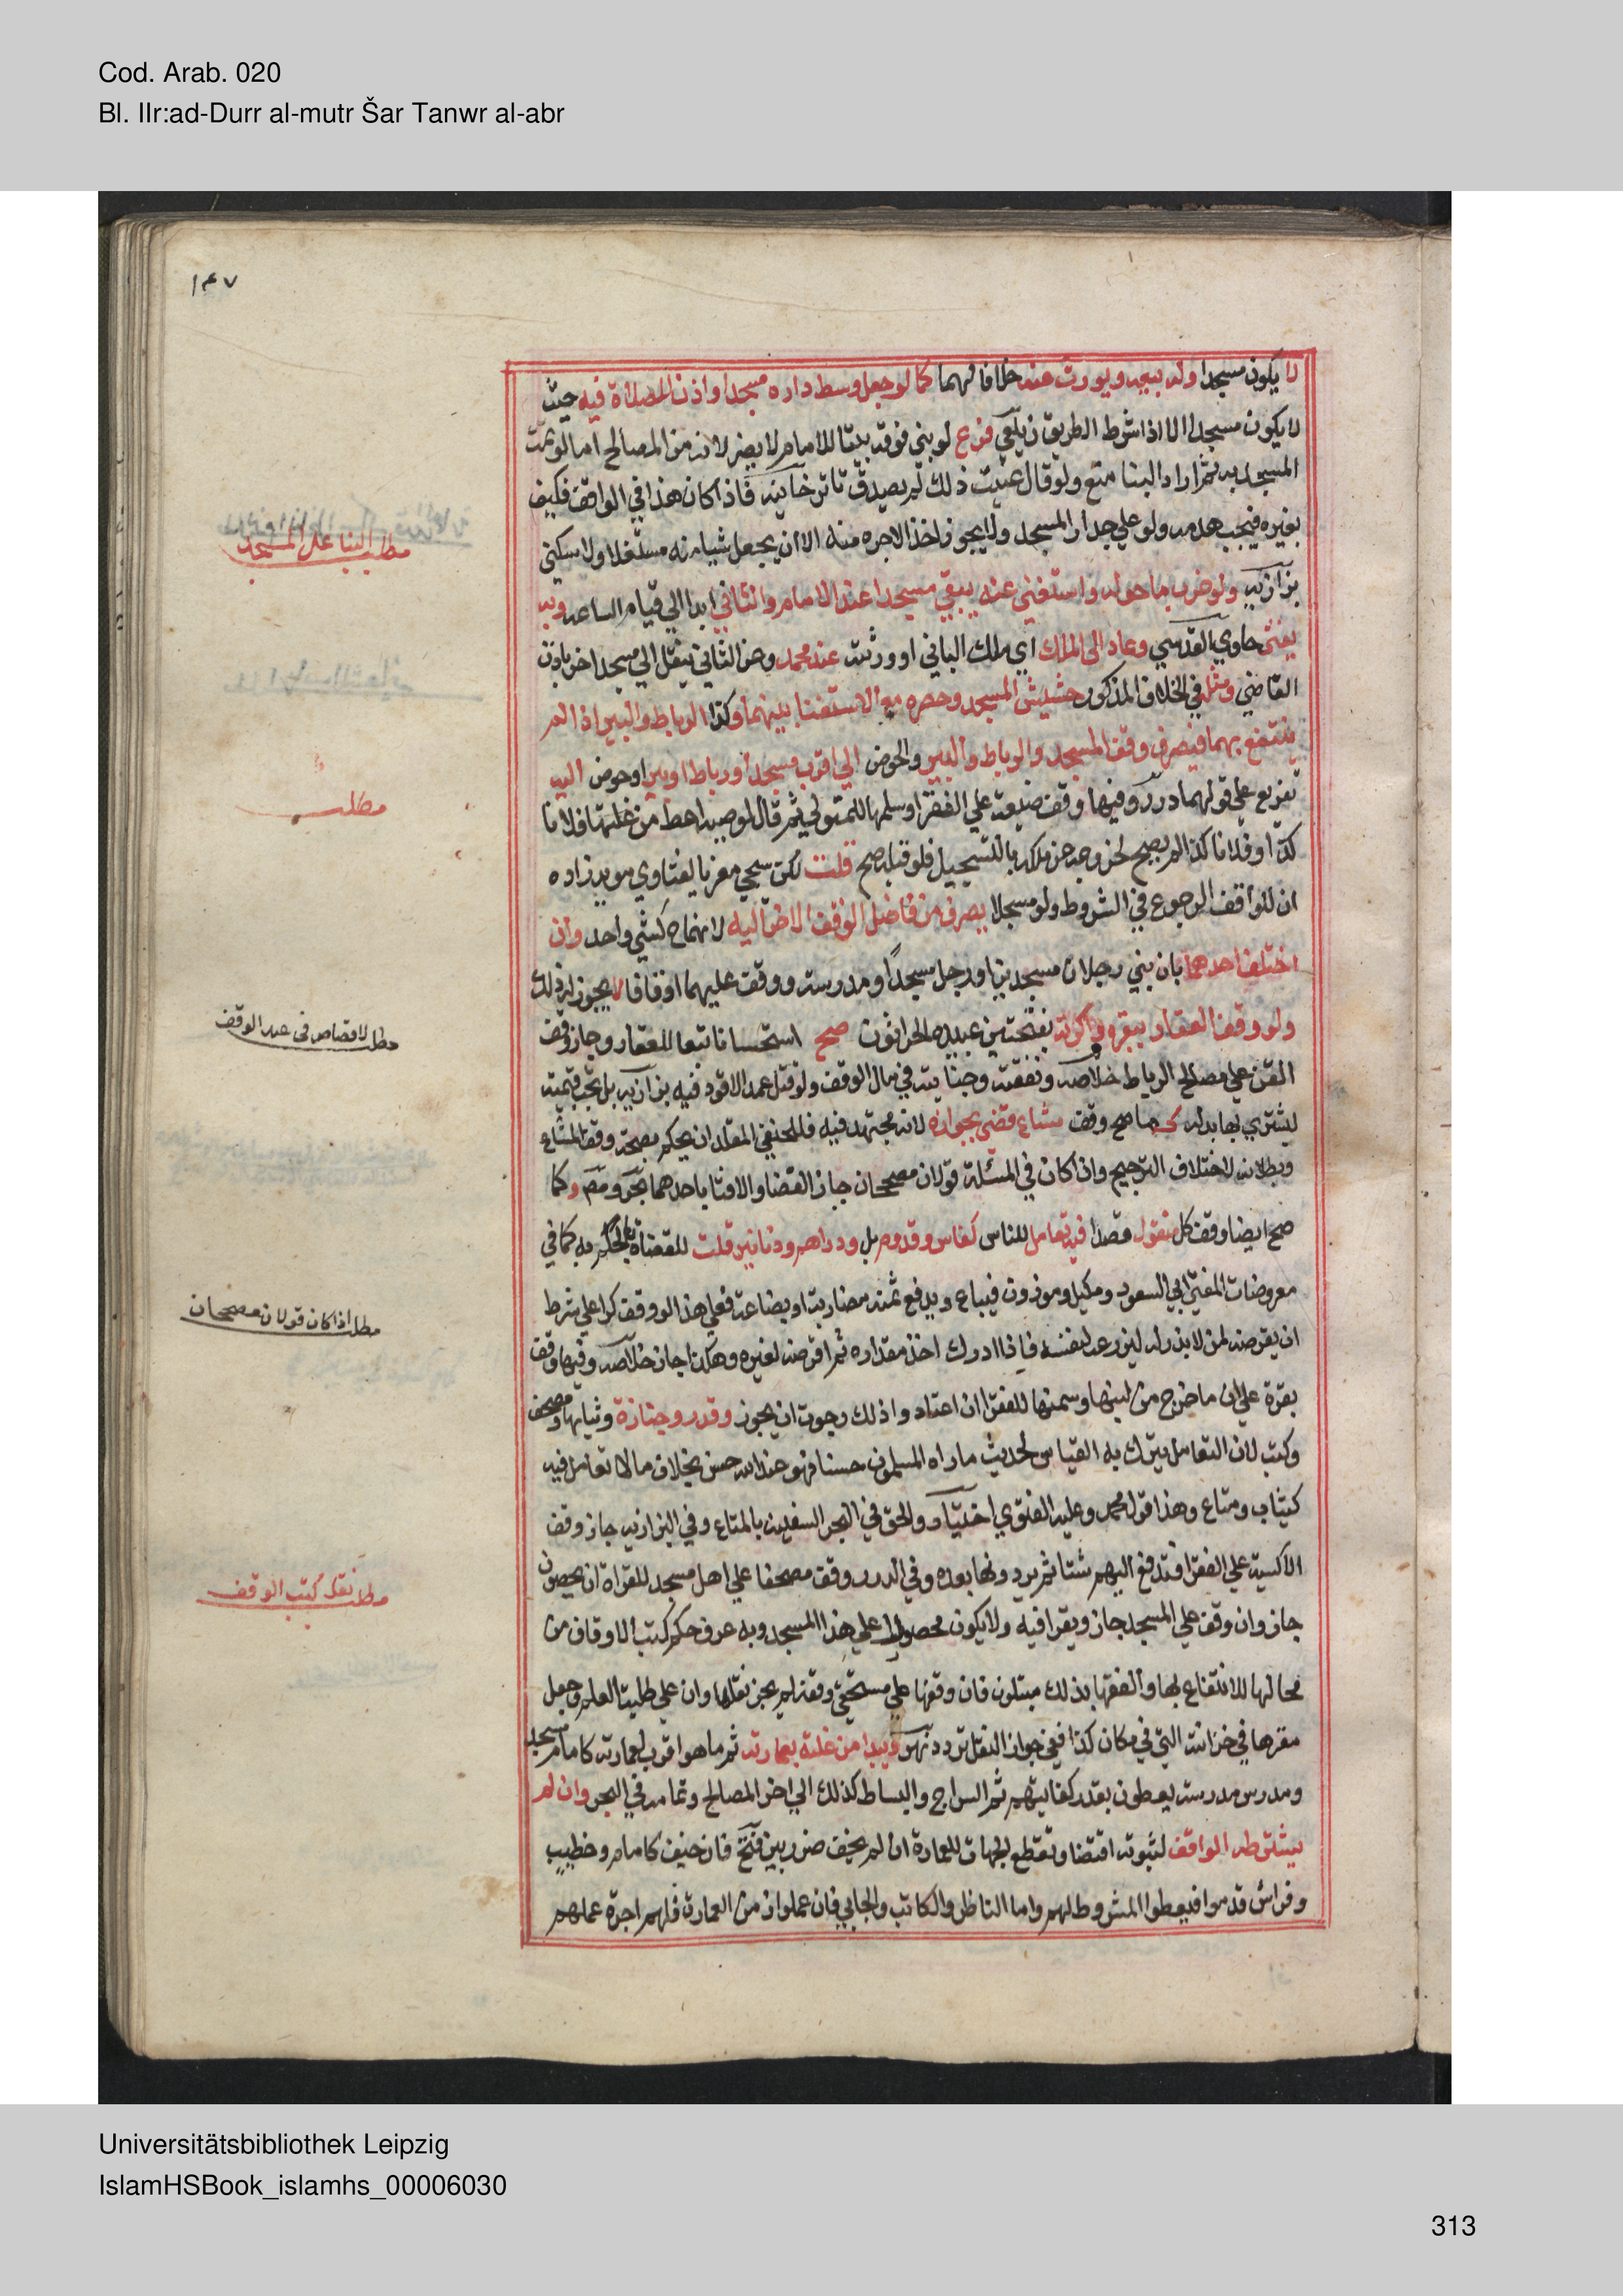 Cod. Arab. 020
Bl. IIr:ad-Durr al-mutr Šar Tanwr al-abr
١٤٧
لا يكون مسجدا وله بيعه ويورث عنه خلافا لهما كما لو جعل وسط داره مسجدا واذن للصلاة فيه حيث
لا يكون مسجدا الا اذا شرط الطريق زيلعي فرع لو بني فوقه بيتا للامام لا يضر لانه من المصالح اما لو تمت
المسجديه ثم اراد البنا منع ولو قال عنيت ذلك لم يصدق تاترخانيه فاذا كان هذا في الواقف فكيف
بغيره فيجب هدمه ولو علي جدار المسجد ولا يجوز اخذ الاجره منه الا ان يجعل شيا منه مستغلا ولا سكني
بزازيه ولو خرب ما حوله واستغني عنه يبقي مسجدا عند الامام والثاني ابدا الي قيام الساعه وبه
يفتى حاوي القدسي وعاد الى الملك اي ملك الباني او ورثته عند محمد وعن الثاني ينقل الي مسجد اخر باذن
القاضي ومثله في الخلاف المذكور حشيش المسجد وحصره مع الاستغنا بينهما وكذا الرباط والبير اذا لم
ينتفع بهما فيصرف وقف المسجد والرباط والبير والحوض الي اقرب مسجد او رباط او بير او حوض اليه
تفريع علي قولهما درر وفيها وقف ضيعة علي الفقرا وسلمها للمتولي ثم قال لوصيه اعط من غلتها فلانا
كذا وفلانا كذا لم يصح لخروجه عن ملكه بالتسجيل فلو قبله صح قلت لكن سيجي معزيا لفتاوي مويد زاده
ان للواقف الرجوع في الشروط ولو مسجلا يصرف من فاضل الوقف الاخر اليه لانهما ح كشي واحد وان
اختلف احدهما بان بني رجلان مسجدين او رجل مسجدا ومدرسة ووقف عليهما اوقافا لا يجوز له ذلك
ولو وقف العقار ببقره واكرته بفتحتين عبيده الحراثون صح استحسانا تبعا للعقار وجاز وقف
القن علي مصالح الرباط خلاصه ونفقته وجنايته في مال الوقف ولو قتل عمدا لا قود فيه بزازيه بل تجب قيمته
ليشتري بها بدله كما صح وقف مشاع قضي بجوازه لانه مجتهد فيه فللحنفي المقلد ان يحكم بصحة وقف المشاع
وبطلانه لاختلاف الترجيح واذا كان في المسئلة قولان مصححان جاز القضا والافتا باحدهما بحر ومص وكما
صح ايضا وقف كل منقول قصدا فيه تعامل للناس كفاس وقدوم بل ودراهم ودنانير قلت للقضاة بالحكم به كما في
معروضات المفتي ابي السعود ومكيل وموزون فيباع ويدفع ثمنه مضاربة او بضاعة فعلي هذا لو وقف كرا علي شرط
ان يقرضه لمن لا بذر له ليزرعه لنفسه فاذا ادرك اخذ مقداره ثم اقرضه لغيره وهكذا جاز خلاصه وفيها وقف
بقرة علي ان ما خرج من لبنها وسمنها للفقرا ان اعتادوا ذلك رجوت ان يجوز وقدر وجنازة وثيابها ومصحف
وكتب لان التعامل يترك به القياس لحديث ما راه المسلمون حسنا فهو عند الله حسن بخلاف ما لا تعامل فيه
كثياب ومتاع وهذا قول محمد وعليه الفتوي اختيار والحق في البحر السفينه بالمتاع وفي البزازيه جاز وقف
الاكسية علي الفقرا فتدفع اليهم شتا ثم يردونها بعده وفي الدرر وقف مصحفا علي اهل مسجد للقراة ان يحصون
جاز وان وقف علي المسجد جاز ويقرا فيه ولا يكون محصورا علي هذا المسجد وبه عرف حكم كتب الاوقاف من
محالها للانتفاع بها والفقها بذلك مبتلون فان وقفها علي مستحقي وقفه لم يجز نقلها وان علي طلبة العلم وجعل
مقرها في خزانته التي في مكان كذا ففي جواز النقل تردد نهر ويبدا من غلته بعمارته ثم ما هو اقرب لعمارته كامام مسجد
ومدرس مدرسة يعطون بقدر كفايتهم ثم السراج والبساط كذلك الي اخر المصالح وتمامه في البحر وان لم
يشترطه الواقف لثبوته اقتضا وتقطع الجهات للعمارة ان لم يخف ضرر بين فتح فان خيف كامام وخطيب
وفراش قدموا فيعطوا المشروط لهم واما الناظر والكاتب والجابي فان عملوا زمن العمارة فلهم اجرة عملهم
مطلب البنا علي المسجد
مطلب
مطل لا قصاص في عبد الوقف
مطل اذا كان قولان مصححان
مطل نقل كتب الوقف
Universitätsbibliothek Leipzig
IslamHSBook_islamhs_00006030
313